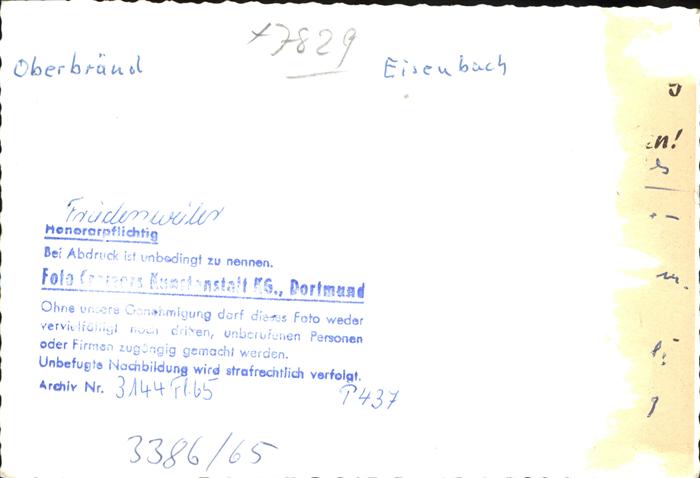 +7829
Oberbränd Eisenbach
n!
Friedenweiler
Honorarpflichtig
Bei Abdruck ist unbedingt zu nennen.
Foto Cramers Kunstanstalt KG., Dortmund
Ohne unsere Genehmigung darf dieses Foto weder
vervielfältigt noch dritten, unberufenen Personen
oder Firmen zugängig gemacht werden.
Unbefugte Nachbildung wird strafrechtlich verfolgt.
Archiv Nr. 3144 Fl. 65 P437
3386/65